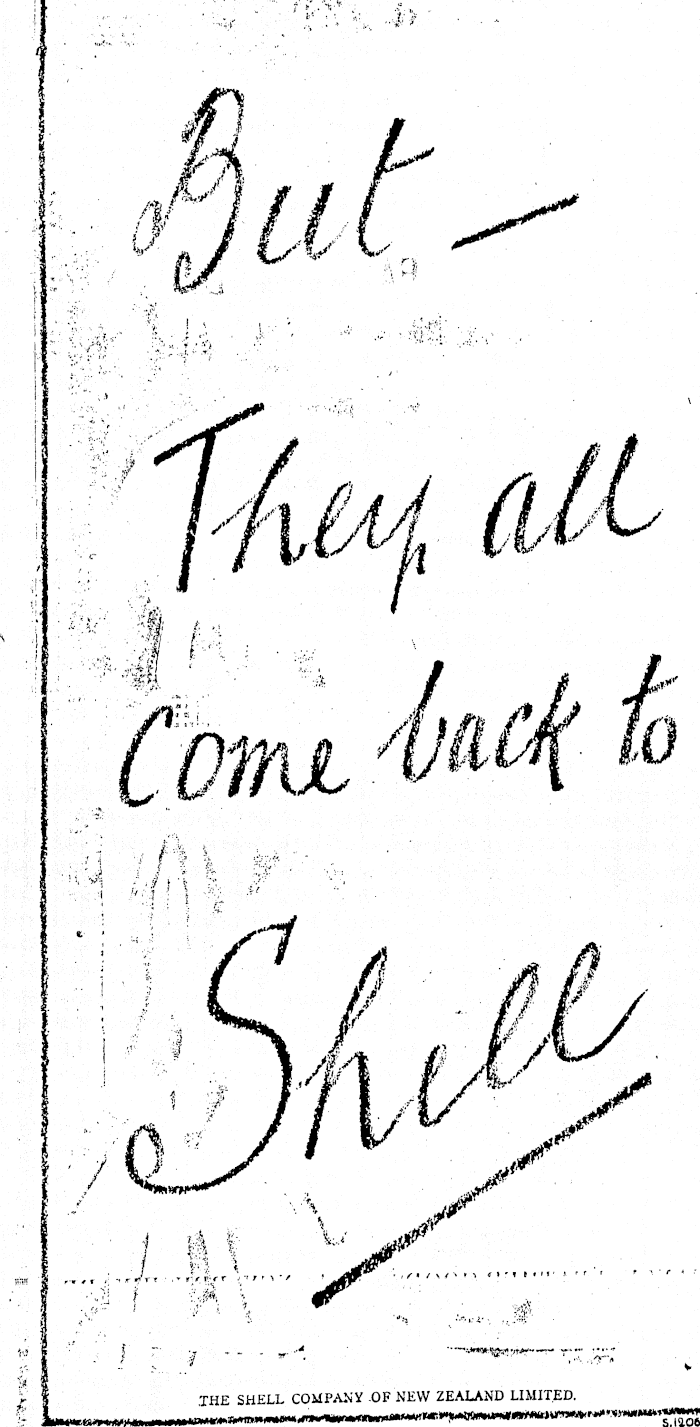 But —
They all
come back to
Shell
THE SHELL COMPANY OF NEW ZEALAND LIMITED.